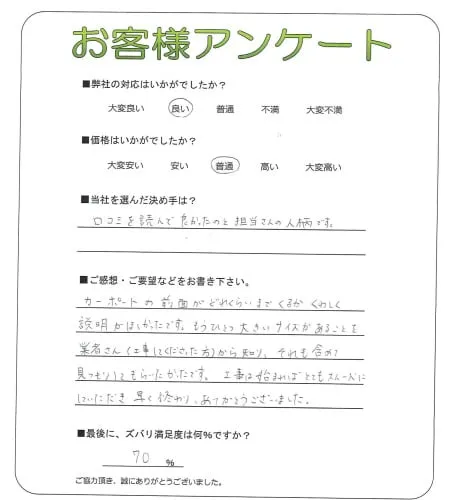 お客様アンケート
■弊社の対応はいかがでしたか？
大変良い 良い 普通 不満 大変不満
■価格はいかがでしたか？
大変安い 安い 普通 高い 大変高い
■当社を選んだ決め手は？
口コミを読んで良かったのと担当さんの人柄です。
■ご感想・ご要望などをお書き下さい。
カーポートの前面がどれくらいまでくるか くわしく
説明がほしかったです。もうひとつ大きいサイズがあることを
業者さん（工事してくださった方）から知り、それも含めて
見つもりしてもらいたかったです。工事は始まればとても
していただき早く終わり、ありがとうございました。
■最後に、ズバリ満足度は何％ですか？
70 ％
ご協力頂き、誠にありがとうございました。